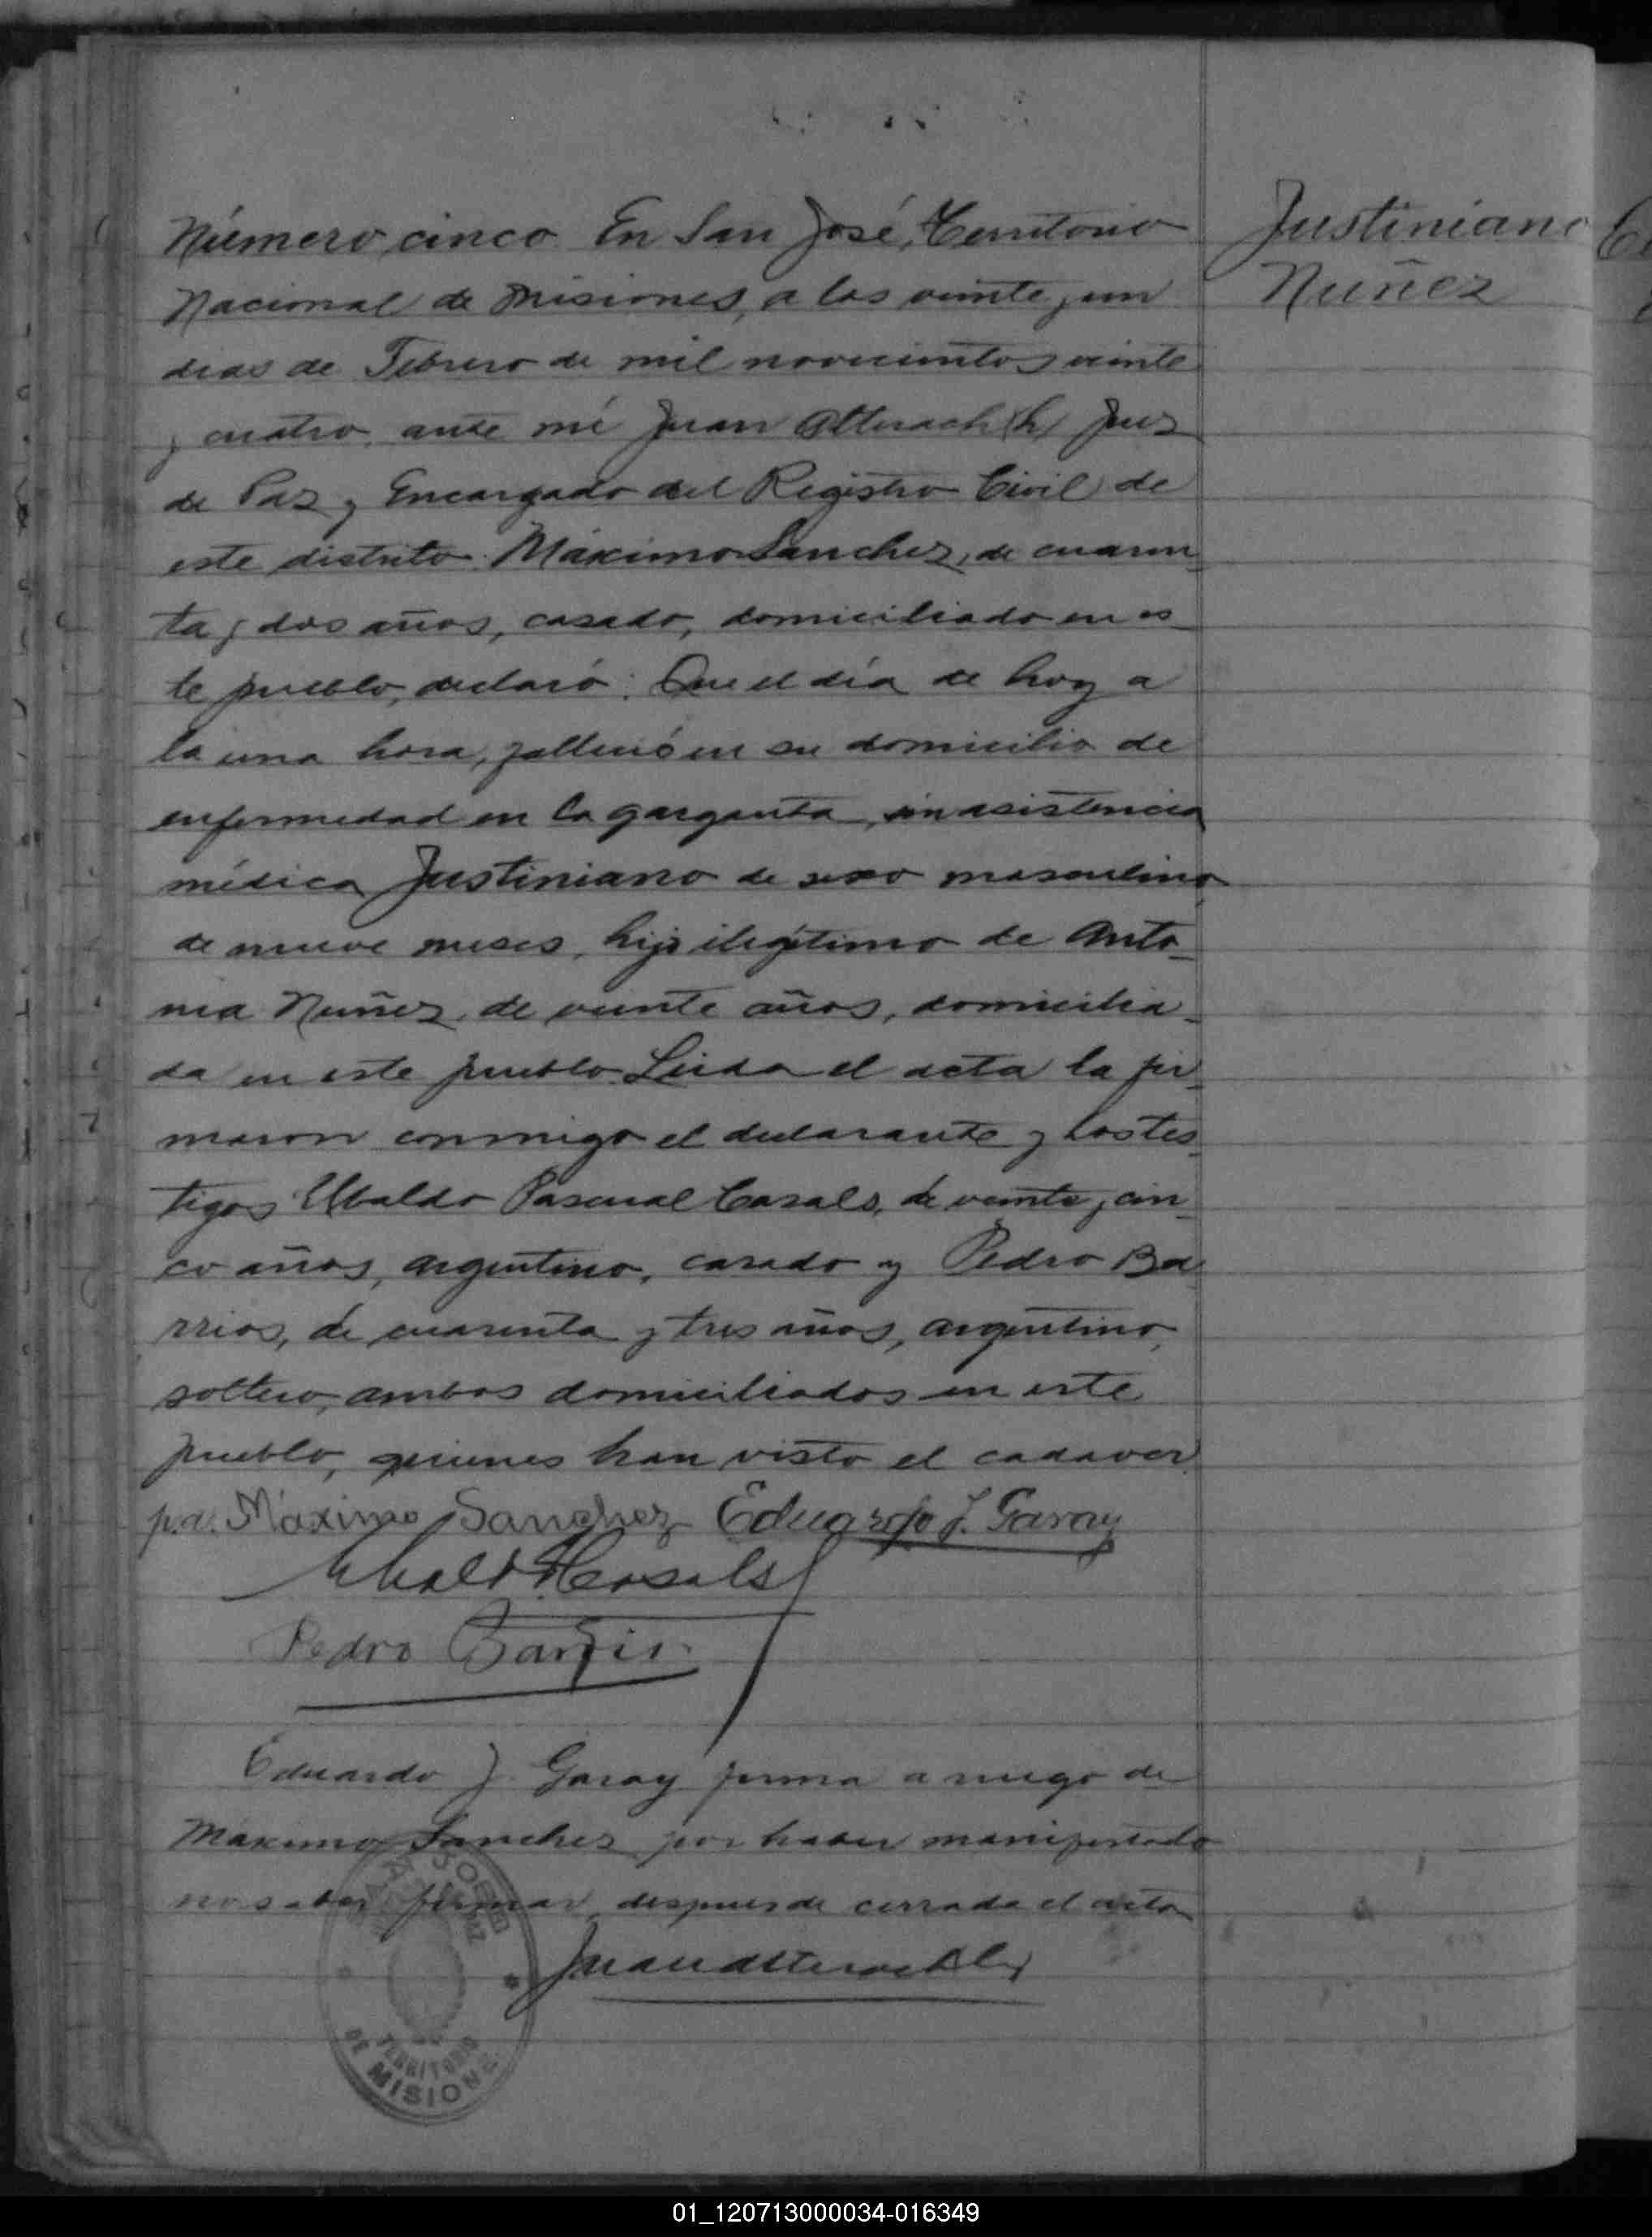 Número cinco En San José, Territorio
Nacional de Misiones, a los veinte y un
dias de Febrero de mil novecientos veinte
y cuatro, ante mi Juan Atterach (h) Juez
de Paz y Encargado del Registro Civil de
este distrito Máximo Sanchez, de cuaren-
ta y dos años, casado, domiciliado en es-
te pueblo, declaró: Que el día de hoy a
la una hora, falleció en su domicilio de
enfermedad en la garganta, sin asistencia
médica Justiniano de sexo masculino
de nueve meses, hijo ilegítimo de Anto-
nia Nuñez, de veinte años, domicilia-
da en este pueblo. Leida el acta la fir-
maron conmigo el declarante y los tes-
tigos Ubaldo Pascual Casals, de veinte y cin-
co años, argentino, casado y Pedro Ba
rrios, de cuarenta y tres años, argentino,
soltero, ambos domiciliados en este
pueblo, quienes han visto el cadaver
p.a. Máximo Sanchez Eduardo J. Garay
Ubaldo P Casals
Pedro Barrios
Eduardo J. Garay firma a ruego de
Maximo Sanchez por haber manifestado
no saber firmar, despues de cerrada el acta
Juan Atterach (h)
TERRITORIO
DE MISIONES
Justiniano
Nuñez
01_120713000034-016349